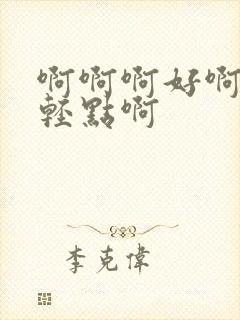 啊啊啊好啊
輕點啊
李克偉